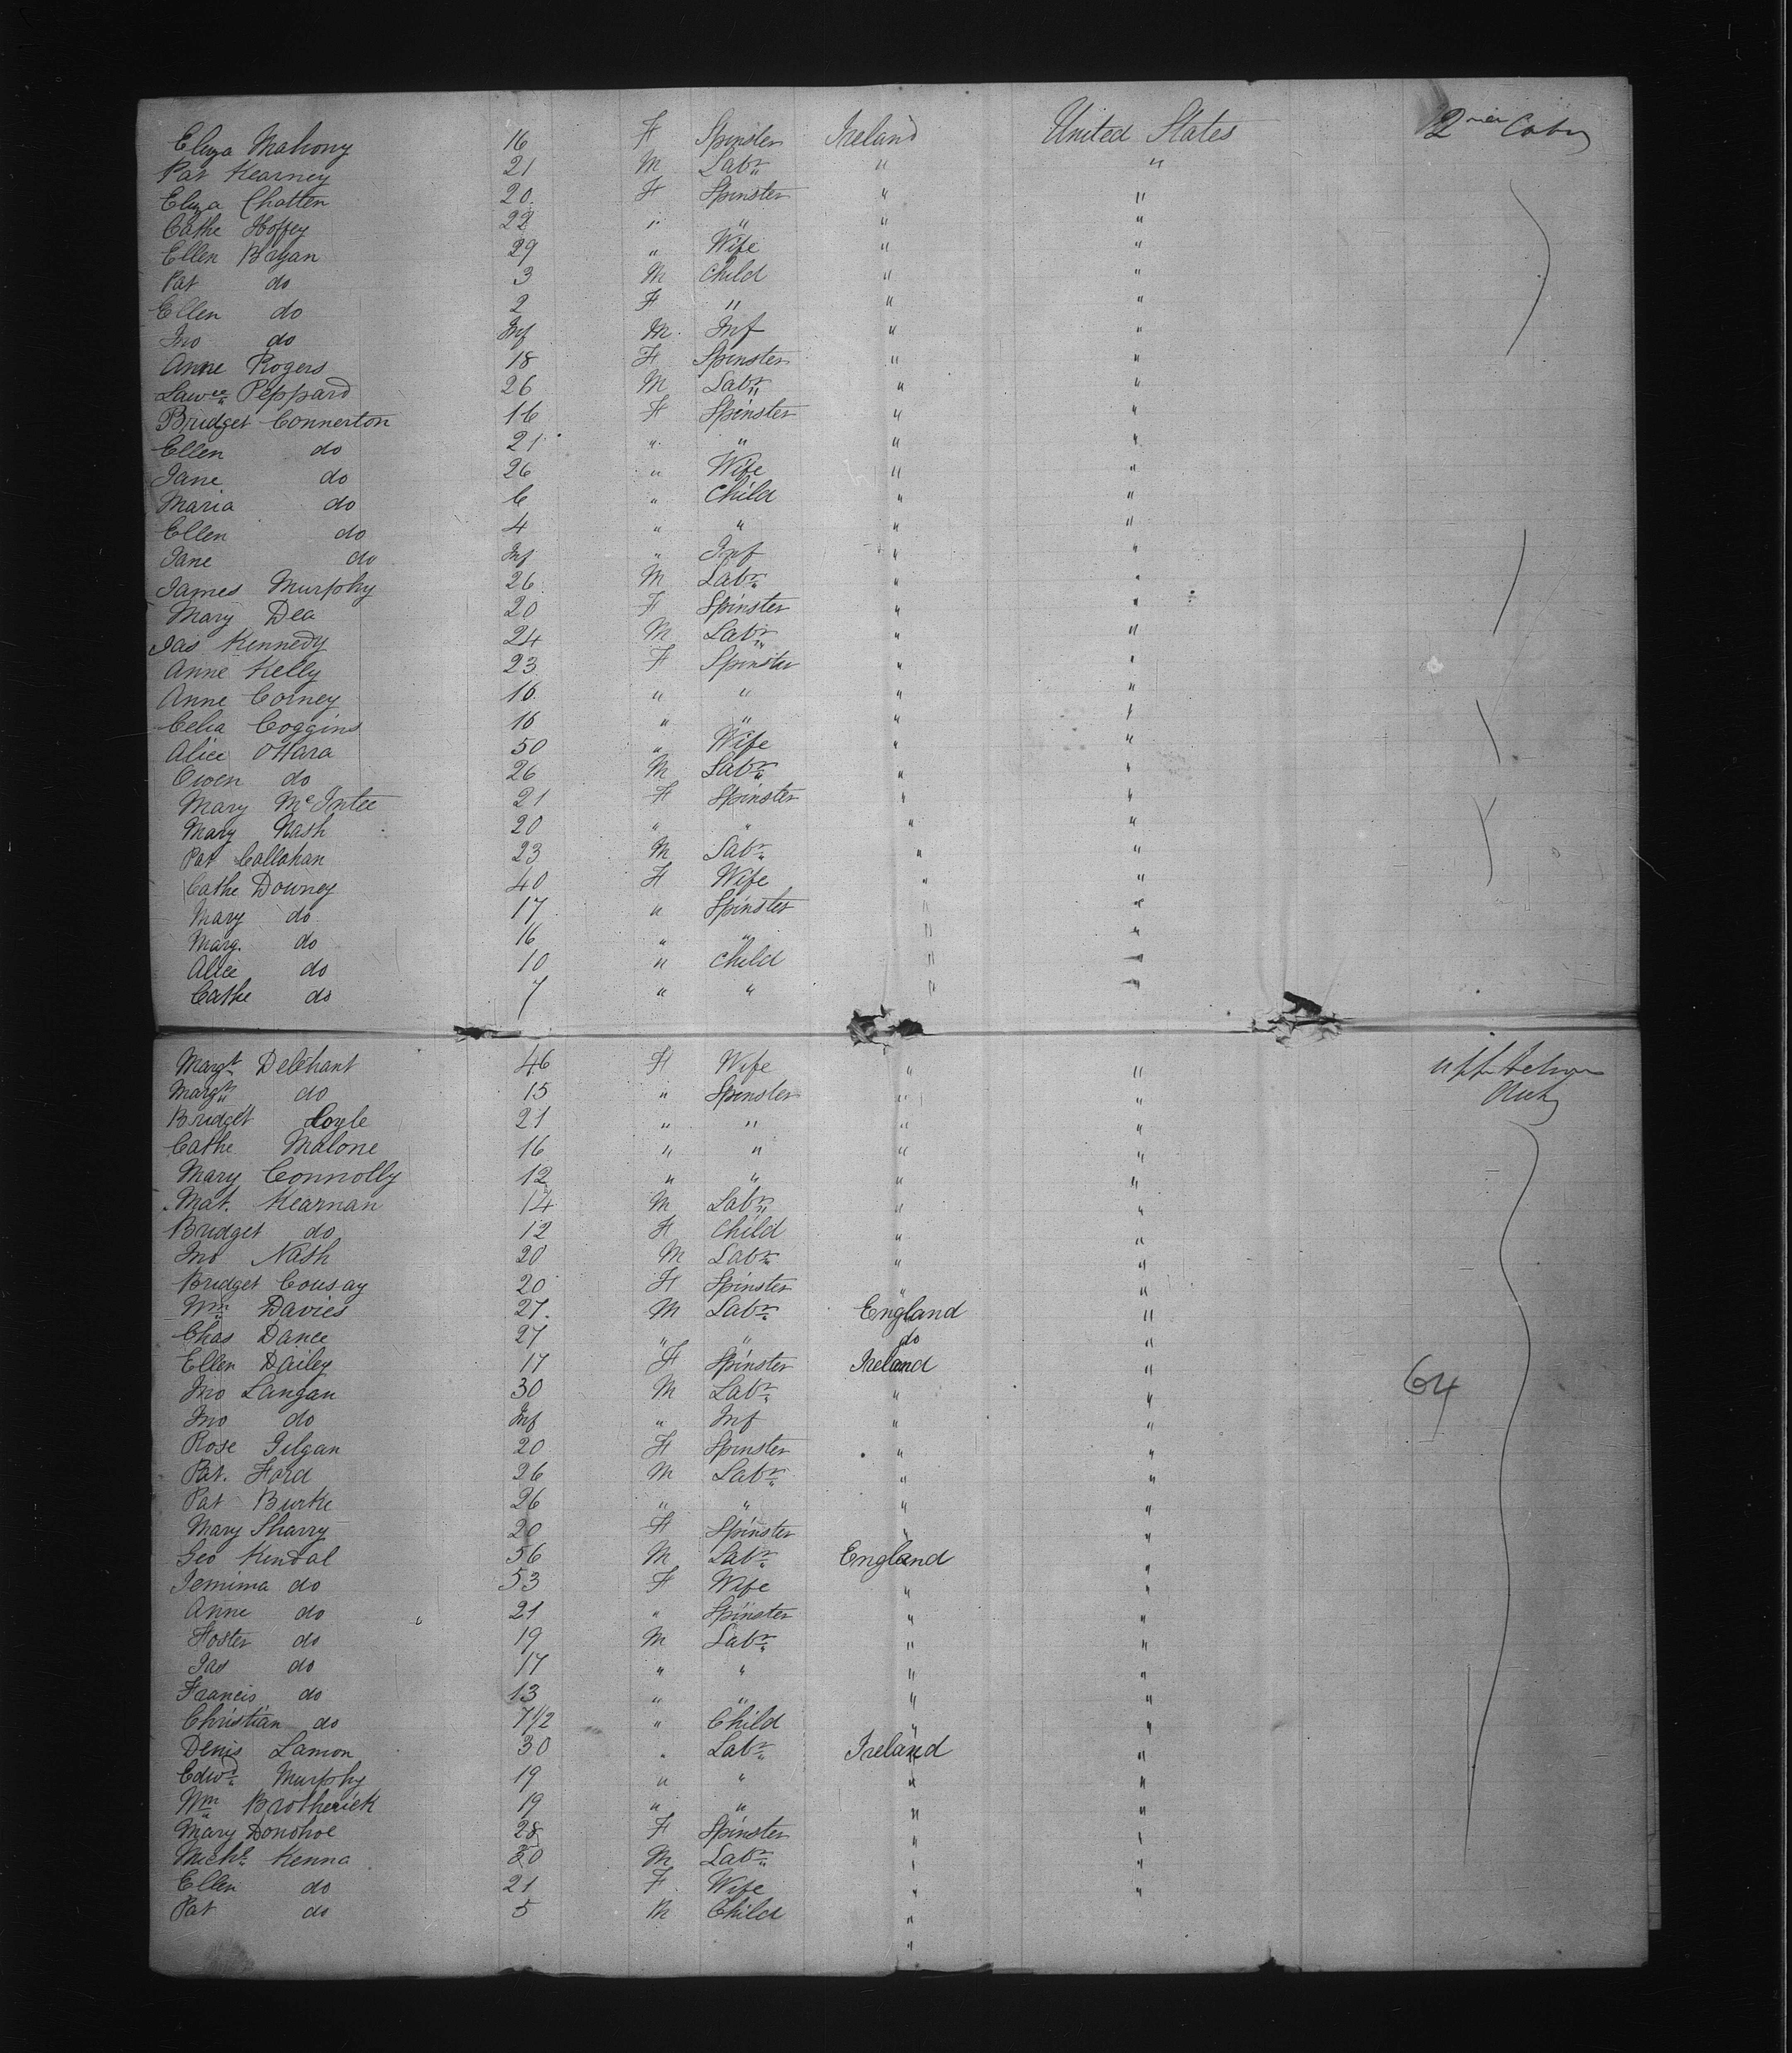 Eliza Mahony 16 F Spinster Ireland United States
Pat Kearney 21 M Labr " "
Eliza Chatten 20 F Spinster " "
Cathe Hoffey 22 " " " "
Ellen Bagan 29 " Wife " "
Pat do 3 M Child " "
Ellen do 2 F " " "
Jno do Inf M Inf " "
Anne Rogers 18 F Spinster " "
Lawce Peppard 26 M Labr " "
Bridget Connerton 16 F Spinster " "
Ellen do 21 " " " "
Jane do 26 " Wife " "
Maria do 6 " Child " "
Ellen do 4 " " " "
Jane do Inf " Inf " "
James Murphy 26 M Labr " "
Mary Dea 20 F Spinster " "
Jas Kennedy 24 M Labr " "
Anne Kelly 23 F Spinster " "
Anne Corney 16 " " " "
Celia Coggins 16 " " " "
Alice OHara 50 " Wife " "
Owen do 26 M Labr " "
Mary McIntee 21 F Spinster " "
Mary Nash 20 " " " "
Pat Callahan 23 M Labr " "
Cathe Downey 40 F Wife " "
Mary do 17 " Spinster " "
Marg. do 16 " " " "
Alice do 10 " Child " "
Cathe do 7 " " " "
Margt Delehant 46 F Wife " "
Margt do 15 " Spinster " "
Bridget Coyle 21 " " " "
Cathe Malone 16 " " " "
Mary Connolly 12 " " " "
Mat. Kearnan 14 M Labr " "
Bridget do 12 F Child " "
Jno Nash 20 M Labr " "
Bridget Cousay 20 F Spinster " "
Wm Davies 27 M Labr England "
Chas Dance 27 " " do "
Ellen Dailey 17 F Spinster Ireland "
Jno Langan 30 M Labr " " 64
Jno do Inf " Inf " "
Rose Gilgan 20 F Spinster " "
Pat. Ford 26 M Labr " "
Pat Burke 26 " " " "
Mary Sharry 20 F Spinster " "
Geo Kendal 56 M Labr England "
Jemima do 53 F Wife " "
Anne do 21 " Spinster " "
Foster do 19 M Labr " "
Jas do 17 " " " "
Francis do 13 " " " "
Christian do 7 1/2 " Child " "
Denis Lamon 30 " Labr Ireland "
Edwd Murphy 19 " " " "
Wm Brotherick 19 " " " "
Mary Donohoe 28 F Spinster " "
Michl Kenna 30 M Labr " "
Ellen do 21 F Wife " "
Pat do 5 M Child "